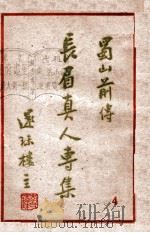 蜀山前傳
長眉真人專集
還珠樓主
4